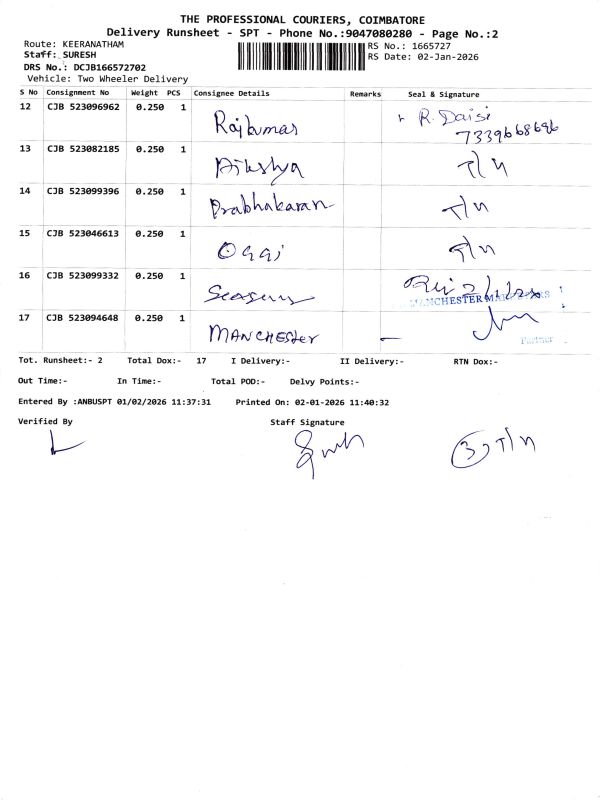 THE PROFESSIONAL COURIERS, COIMBATORE
Delivery Runsheet - SPT - Phone No.:9047080280 - Page No.:2
Route: KEERANATHAM
RS No.: 1665727
Staff: SURESH
RS Date: 02-Jan-2026
DRS No.: DCJB166572702
Vehicle: Two Wheeler Delivery
S No Consignment No Weight PCS Consignee Details Remarks Seal & Signature
12 CJB 523096962 0.250 1 Rajkumar R. Daisi
7339668686
13 CJB 523082185 0.250 1 Dikshya T/N
14 CJB 523099396 0.250 1 Prabhakaran T/N
15 CJB 523046613 0.250 1 Oggi T/N
16 CJB 523099332 0.250 1 Seasens
MANCHESTER
17 CJB 523094648 0.250 1 MANCHESTER -
Partner
Tot. Runsheet:- 2 Total Dox:- 17 I Delivery:- II Delivery:- RTN Dox:-
Out Time:- In Time:- Total POD:- Delvy Points:-
Entered By :ANBUSPT 01/02/2026 11:37:31 Printed On: 02-01-2026 11:40:32
Verified By Staff Signature
3 T/N